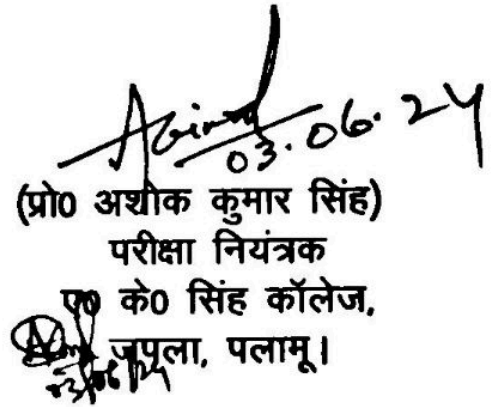 03.06.24
(प्रो0 अशोक कुमार सिंह)
परीक्षा नियंत्रक
ए0 के0 सिंह कॉलेज,
जपला, पलामू।
03/06/24